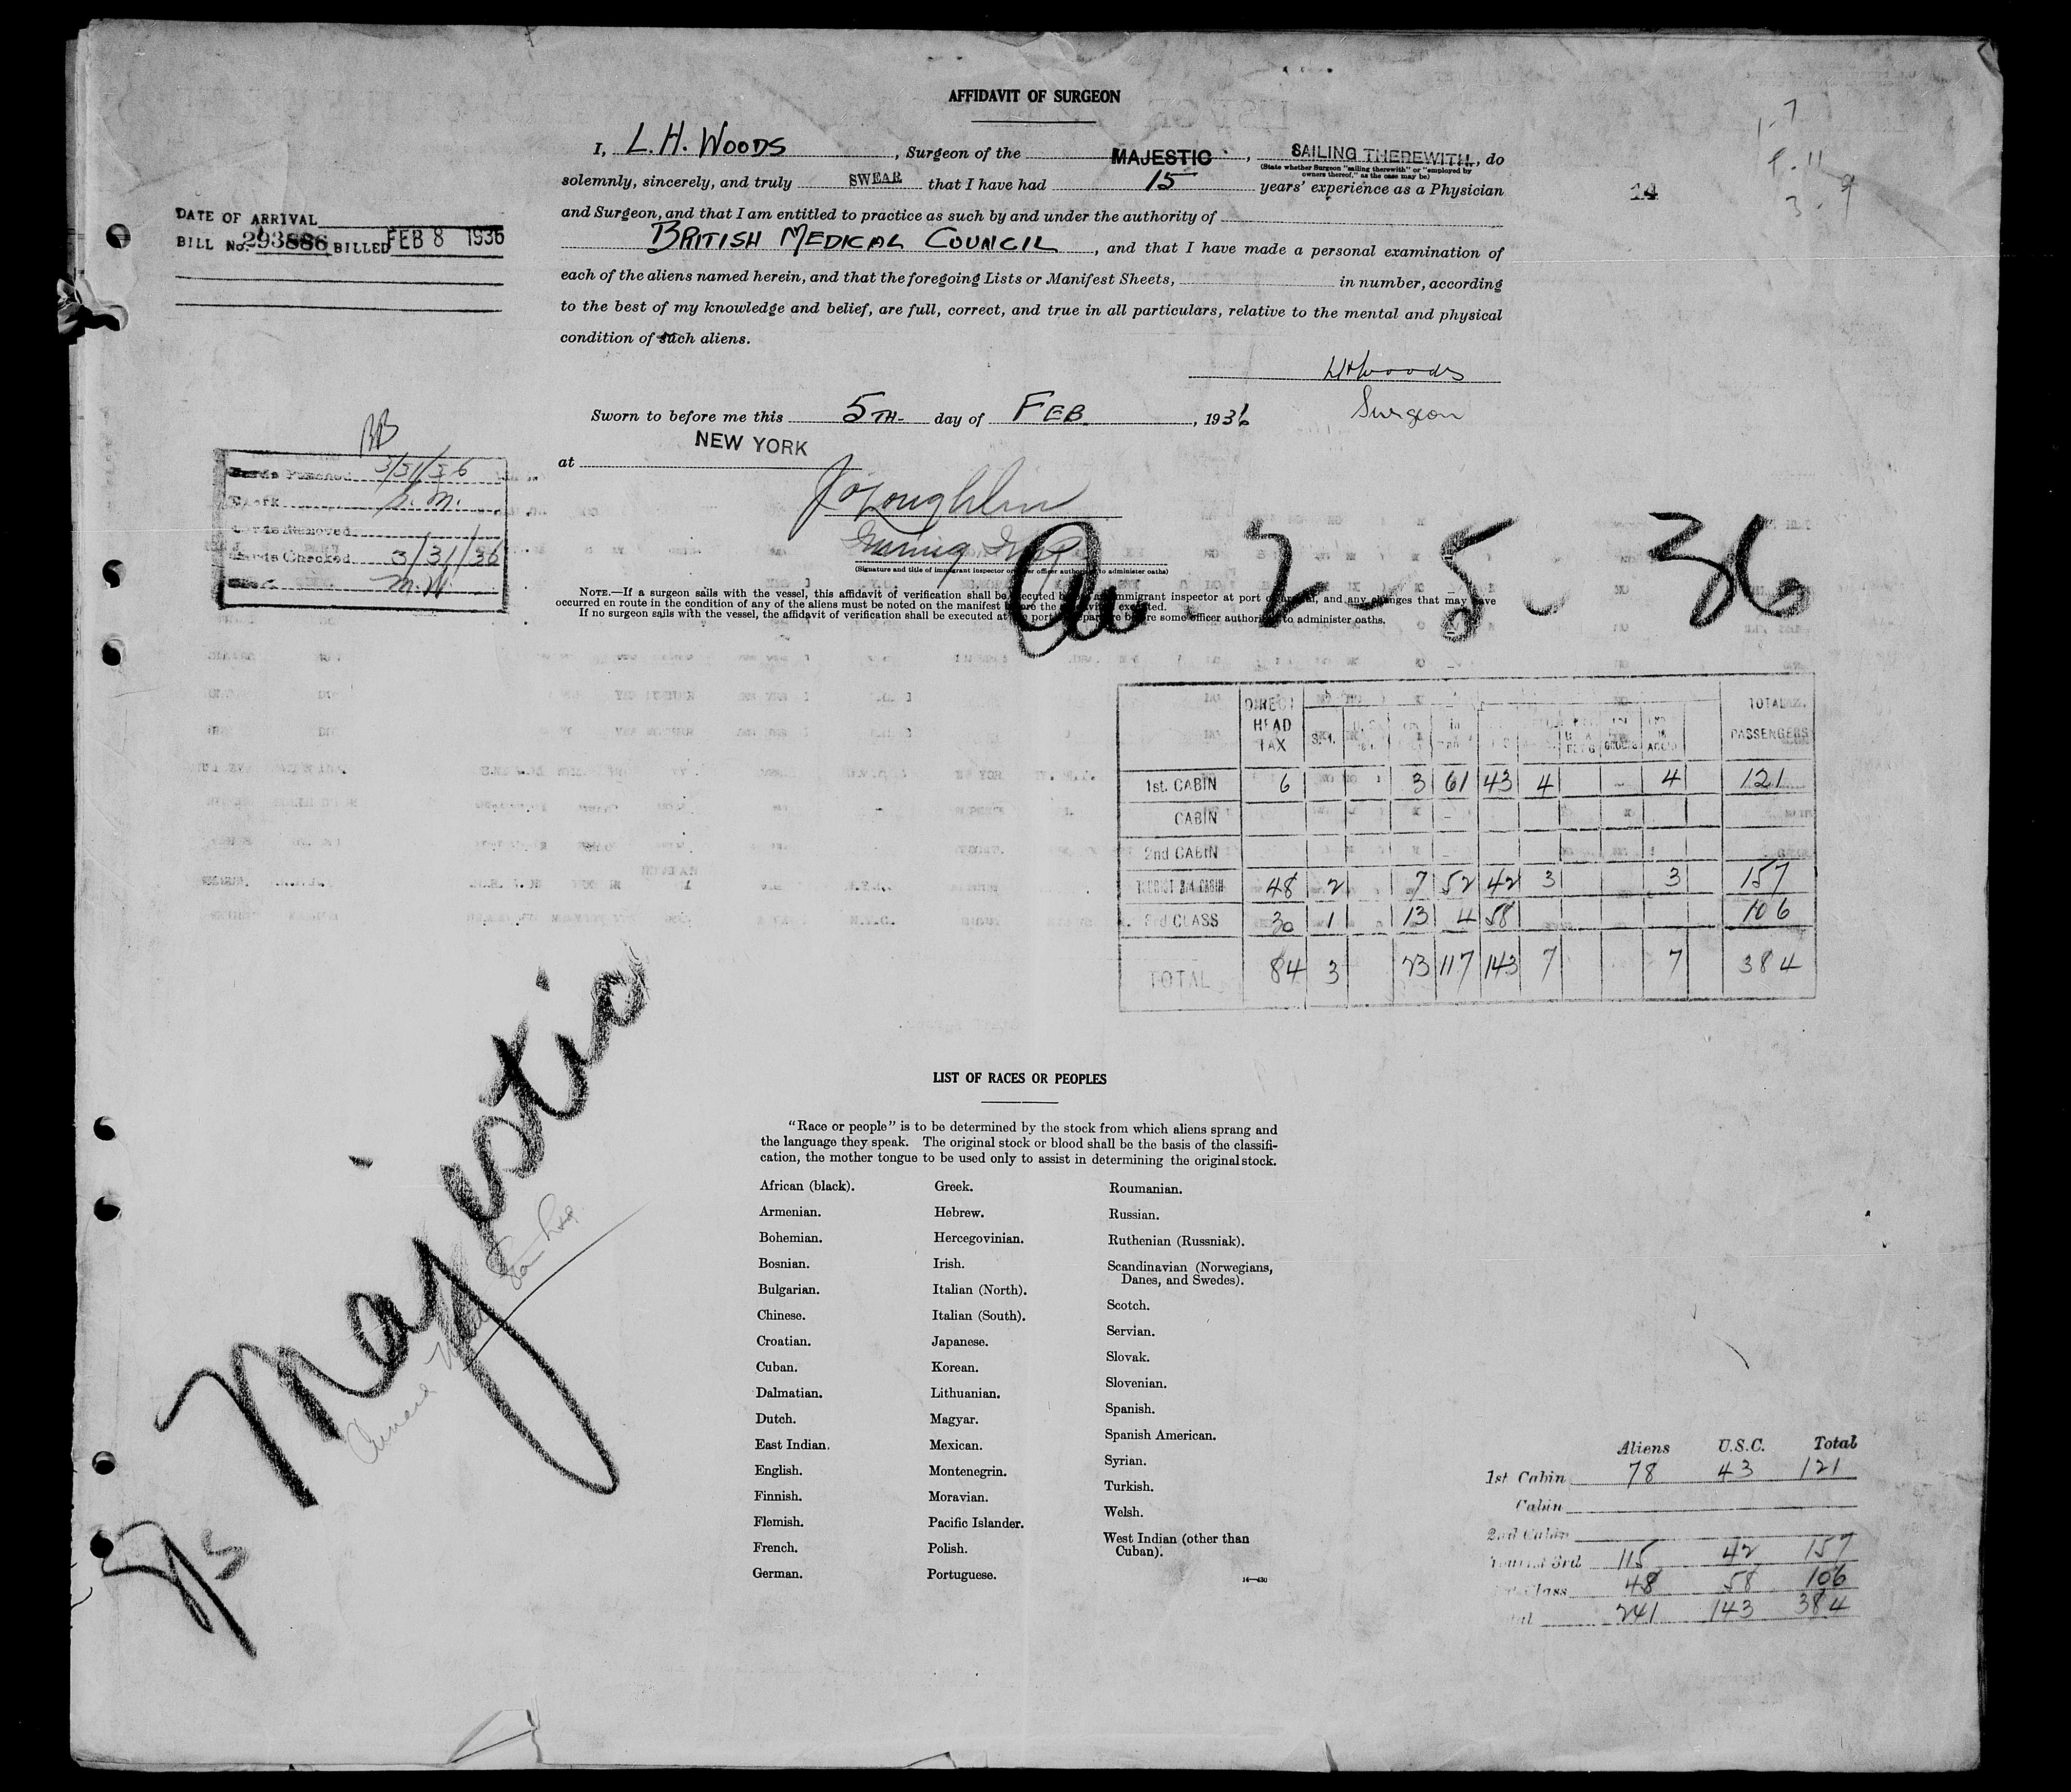 AFFIDAVIT OF SURGEON
I, L. H. WOODS, Surgeon of the MAJESTIC, SAILING THEREWITH, do
(State whether Surgeon "sailing therewith" or "employed by
owners thereof," as the case may be)
solemnly, sincerely, and truly SWEAR that I have had 15 years' experience as a Physician
and Surgeon, and that I am entitled to practice as such by and under the authority of
BRITISH MEDICAL COUNCIL, and that I have made a personal examination of
each of the aliens named herein, and that the foregoing Lists or Manifest Sheets, in number, according
to the best of my knowledge and belief, are full, correct, and true in all particulars, relative to the mental and physical
condition of such aliens.
LHWoods
Surgeon
Sworn to before me this 5TH- day of FEB., 1936
at NEW YORK
J O'Loughlin
(Signature and title of immigrant inspector or other officer authorized to administer oaths)
NOTE.—If a surgeon sails with the vessel, this affidavit of verification shall be executed before an immigrant inspector at port of arrival, and any changes that may have
occurred en route in the condition of any of the aliens must be noted on the manifest before the affidavit is executed.
If no surgeon sails with the vessel, the affidavit of verification shall be executed at the port of departure before some officer authorized to administer oaths.
14
DATE OF ARRIVAL
BILL No. 293886 BILLED FEB 8 1936
BB
Cards Punched 3/31/36
Clerk
Cards Removed
Cards Checked 3/31/36
Clerk M.W.
2-5-36
DIRECT HEAD TAX
TOTAL PASSENGERS
1st. CABIN 6 3 61 43 4 4 121
CABIN
2nd CABIN
TOURIST 3rd CABIN 48 2 7 52 42 3 3 157
3rd CLASS 30 1 13 4 58 106
TOTAL 84 3 23 117 143 7 7 384
Majestic
LIST OF RACES OR PEOPLES
"Race or people" is to be determined by the stock from which aliens sprang and
the language they speak. The original stock or blood shall be the basis of the classifi-
cation, the mother tongue to be used only to assist in determining the original stock.
African (black).
Armenian.
Bohemian.
Bosnian.
Bulgarian.
Chinese.
Croatian.
Cuban.
Dalmatian.
Dutch.
East Indian.
English.
Finnish.
Flemish.
French.
German.
Greek.
Hebrew.
Hercegovinian.
Irish.
Italian (North).
Italian (South).
Japanese.
Korean.
Lithuanian.
Magyar.
Mexican.
Montenegrin.
Moravian.
Pacific Islander.
Polish.
Portuguese.
Roumanian.
Russian.
Ruthenian (Russniak).
Scandinavian (Norwegians,
Danes, and Swedes).
Scotch.
Servian.
Slovak.
Slovenian.
Spanish.
Spanish American.
Syrian.
Turkish.
Welsh.
West Indian (other than
Cuban).
14—430
Aliens U.S.C. Total
1st Cabin 78 43 121
Cabin
2nd Cabin
Tourist 3rd 115 42 157
Class 48 58 106
Total 241 143 384